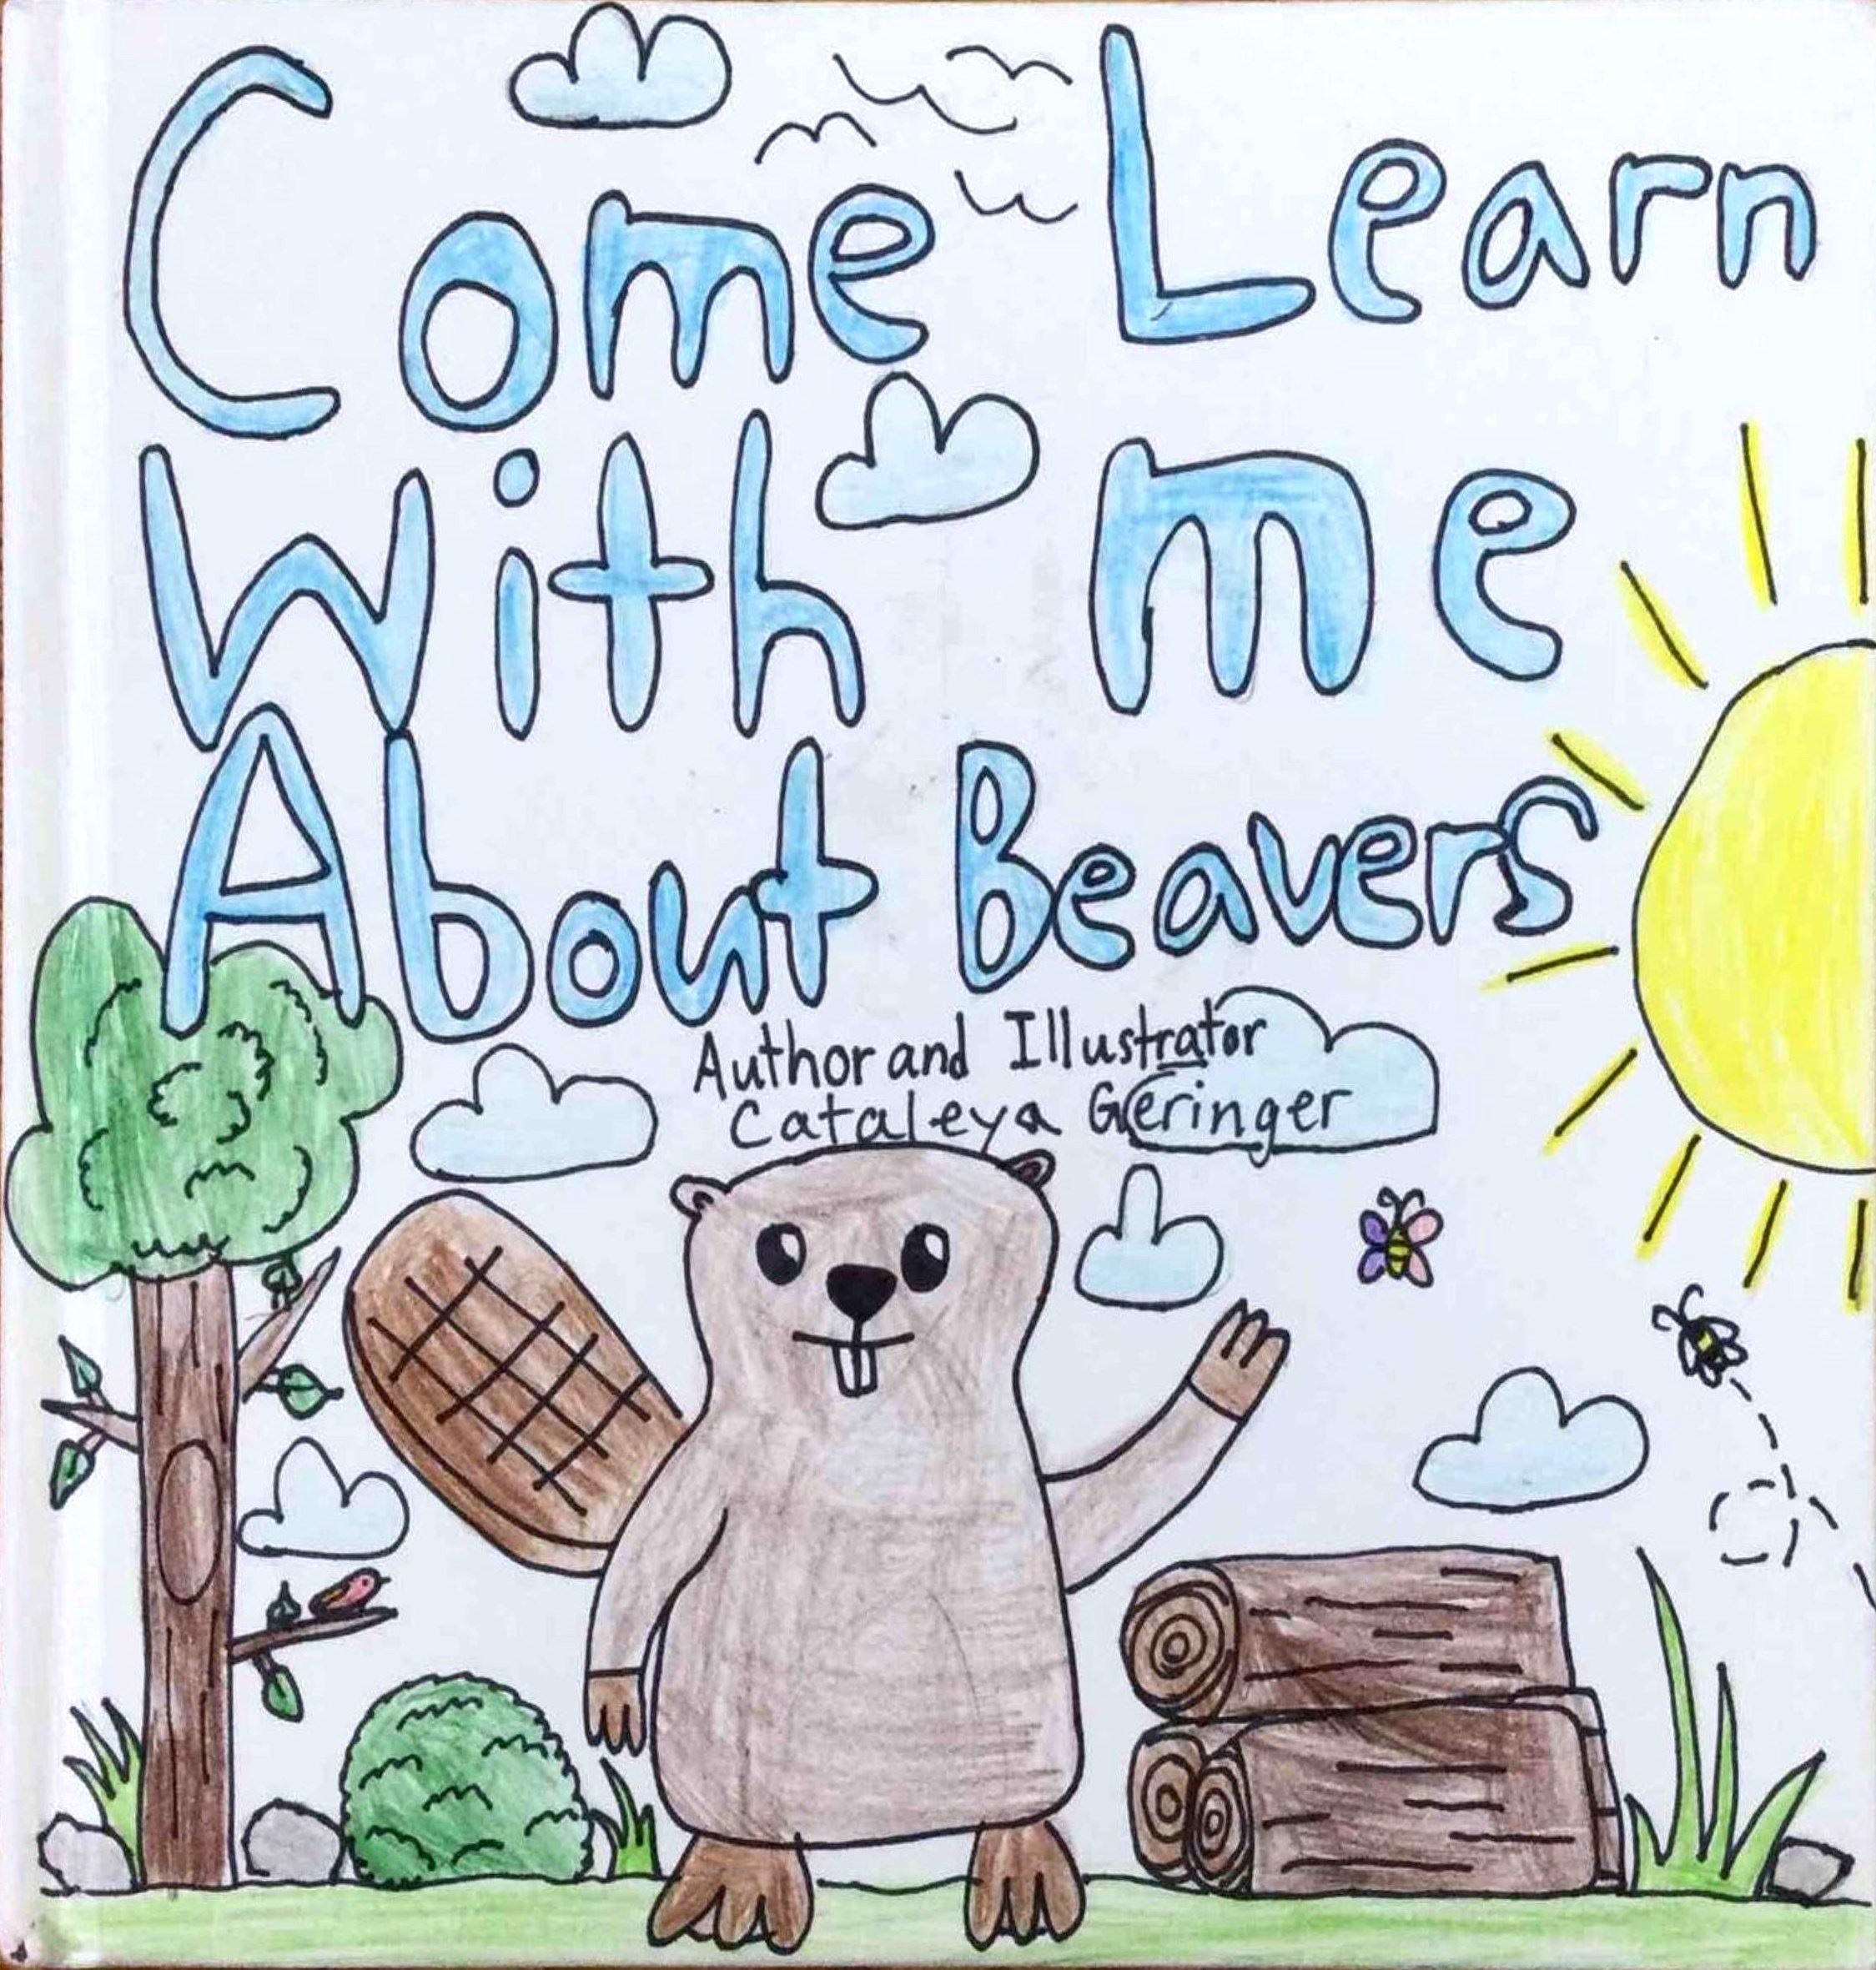 Come Learn
With me
About Beavers
Author and Illustrator
Cataleya Geringer